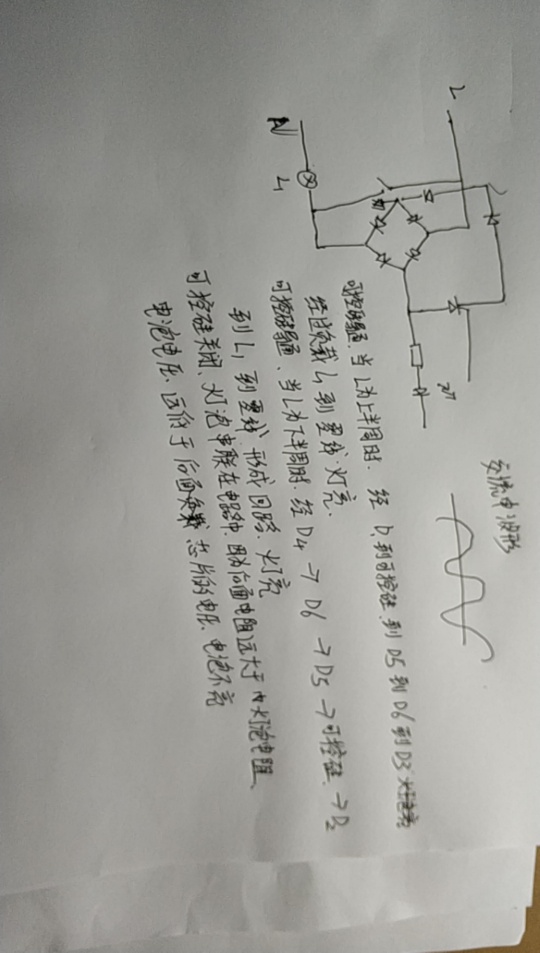 交流电波形
L
N
L1
可控硅导通 当L为上半周时. 经 D1到可控硅.到D5到D6到D3
经过负载L1到零线.灯亮.
可控硅导通、当L为下半周时. 经D4 → D6 → D5 → 可控硅 → D2
到L1 到零线 形成回路、灯亮
可控硅关闭、灯泡串联在电路中.因为后面电阻远大于 灯泡电阻、
电泡电压、远低于后面 芯片的电压、电泡不亮